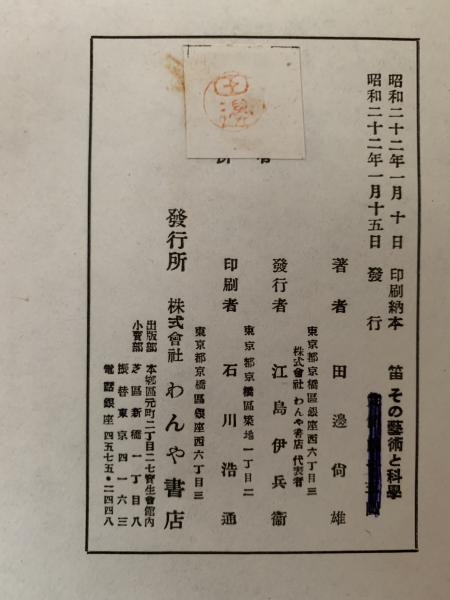 昭和二十二年一月十日 印刷納本
昭和二十二年一月十五日 發行
笛 その藝術と科學
著者 田邊尙雄
東京都京橋區銀座西六丁目三
株式會社 わんや書店 代表者
發行者 江島伊兵衞
東京都京橋區築地一丁目二
印刷者 石川浩通
東京都京橋區銀座西六丁目三
發行所 株式會社 わんや書店
出版部 本鄕區元町二丁目二七寶生會館內
小賣部 芝區新橋一丁目八
振替東京四一六三
電話銀座四五七五・二四四八
田邊